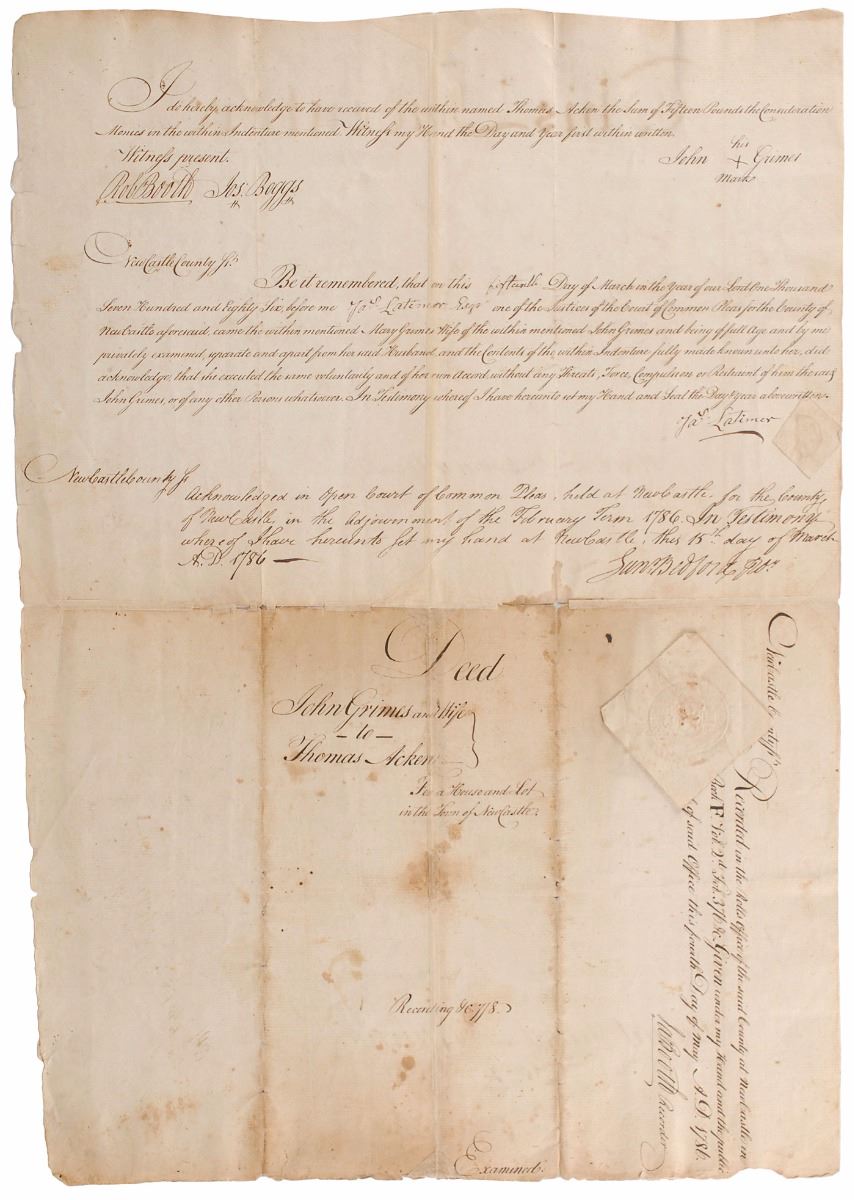 I do hereby acknowledge to have received of the within named Thomas Acken the Sum of Fifteen Pounds the Consideration
Monies in the within Indenture mentioned. Witness my Hand the Day and Year first within written.
Witness present.
John his + Grimes
mark
Robt Booth Jos: Beggs
NewCastle County Ss.
Be it remembered, that on this fifteenth Day of March in the Year of our Lord One Thousand
Seven Hundred and Eighty Six, before me Jas. Latimer Esqr one of the Justices of the Court of Common Pleas for the County of
NewCastle aforesaid, came the within mentioned Mary Grimes Wife of the within mentioned John Grimes and being of full Age and by me
privately examined, separate and apart from her said Husband, and the Contents of the within Indenture fully made known unto her, did
acknowledge, that she executed the same voluntarily and of her own Accord, without any Threats, Force, Compulsion or Restraint of him the said
John Grimes, or of any other Persons whatsoever. In Testimony whereof I have hereunto set my Hand and Seal the Day & Year above written.
Jas. Latimer
NewCastle County Ss
Acknowledged in Open Court of Common Pleas, held at NewCastle, for the County
of NewCastle, in the Adjournment of the February Term 1786. In Testimony
whereof I have hereunto set my hand at NewCastle, this 15th day of March
A.D. 1786
Gunn. Bedford
Deed
John Grimes and Wife
to
Thomas Acken
For a House and Lot
in the Town of NewCastle.
Recording &c 7/8.
Examined.
Newcastle County ss
Recorded in the Rolls Office of the said County at Newcastle in
Book F. Vol. 2d. Fol. 376 &c. Given under my Hand and the public
of said Office this fourth Day of May A.D. 1786.
Booth Recorder